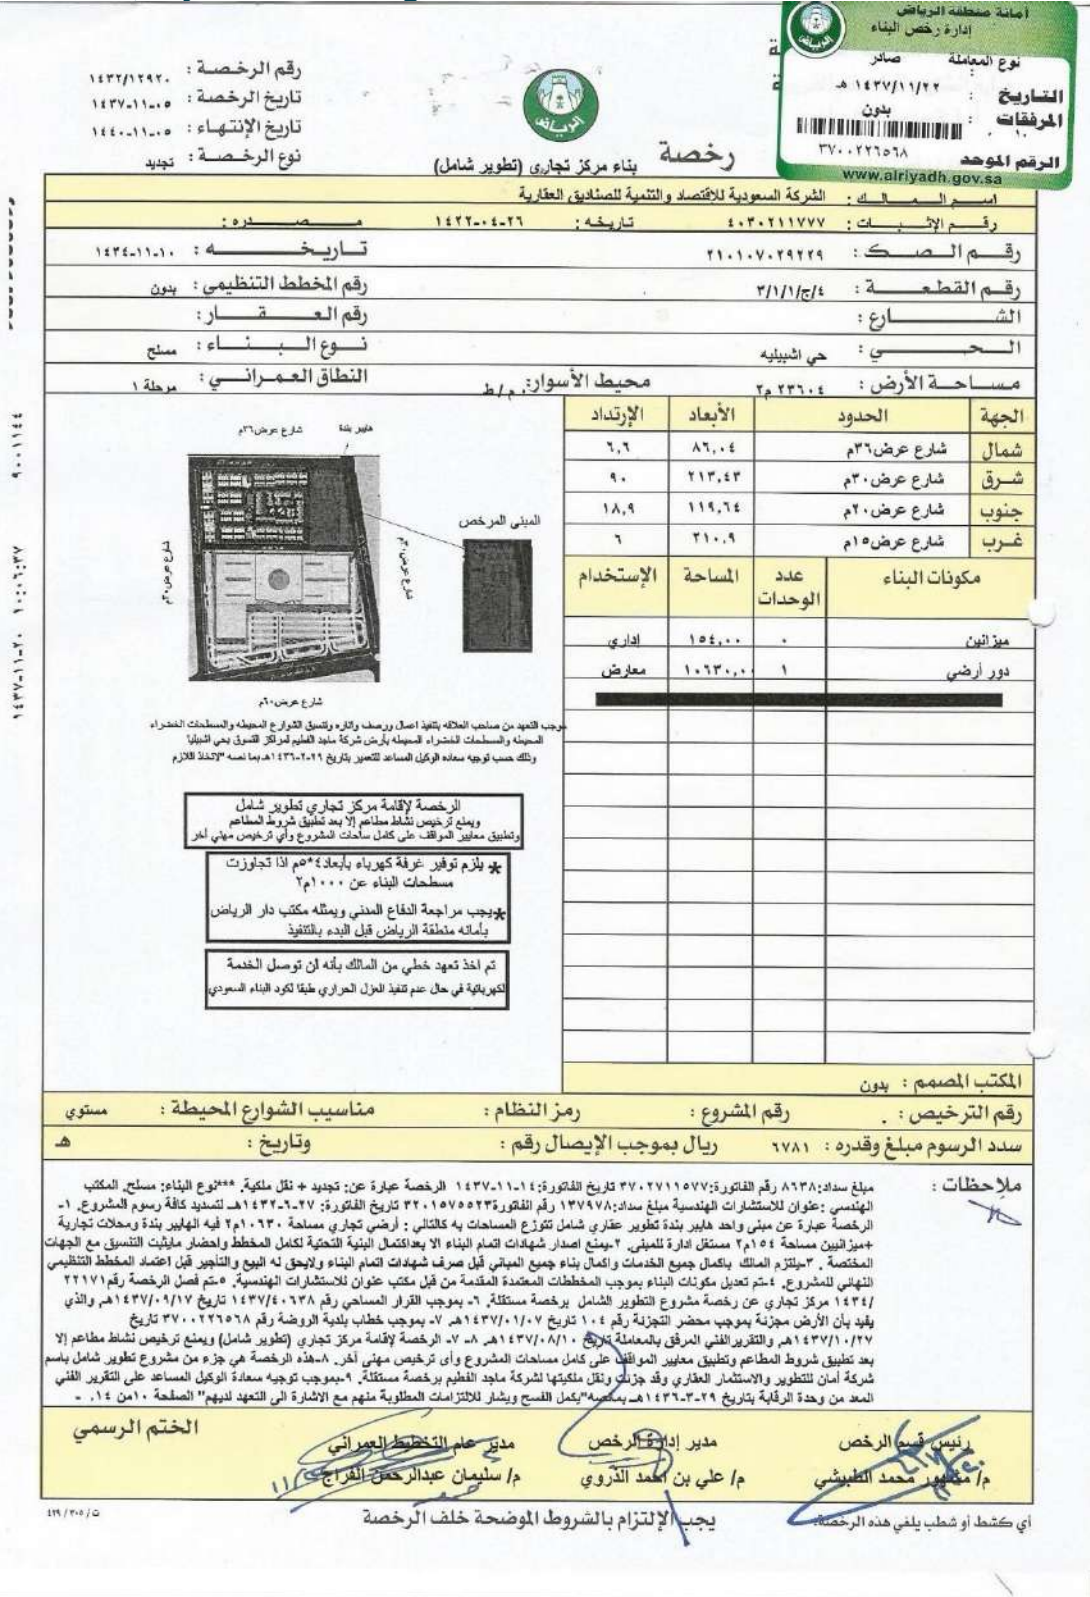 أمانة منطقة الرياض
إدارة رخص البناء
نوع المعاملة صادر
التاريخ : ١٤٣٧/١١/٢٢ هـ
المرفقات : بدون
٣٧٠٠٢٢٦٥٦٨
الرقم الموحد
www.alriyadh.gov.sa
رقم الرخصة : ١٤٣٢/١٢٩٢٠
تاريخ الرخصة : ١٤٣٧-١١-٠٥
تاريخ الإنتهاء : ١٤٤٠-١١-٠٥
نوع الرخصة : تجديد
الرياض
رخصة بناء مركز تجاري (تطوير شامل)
اسم المالك : الشركة السعودية للاقتصاد والتنمية للصناديق العقارية
رقم الإثبات : ٤٠٣٠٢١١٧٧٧ تاريخه : ١٤٢٢-٠٤-٢٦ مصدره :
رقم الصك : ٢١٠١٠٧٠٢٩٢٢٩ تاريخه : ١٤٣٤-١١-١٠
رقم القطعة : ٤/ج/٣/١/١ رقم المخطط التنظيمي : بدون
الشارع : رقم العقار :
الحي : حي اشبيليه نوع البناء : مسلح
مساحة الأرض : ٢٣٦٠٤ م٢ محيط الأسوار : م/ط النطاق العمراني : مرحلة ١
الجهة الحدود الأبعاد الإرتداد
شمال شارع عرض٣٦م ٨٦,٠٤ ٦,٦
شرق شارع عرض٣٠م ٢١٣,٤٣ ٩٠
جنوب شارع عرض٢٠م ١١٩,٦٤ ١٨,٩
غرب شارع عرض١٥م ٢١٠,٩ ٦
مكونات البناء عدد الوحدات المساحة الإستخدام
ميزانين ٠ ١٥٤,٠٠ إداري
دور أرضي ١ ١٠٦٣٠,٠ معارض
هايبر بندة شارع عرض٣٦م
المبنى المرخص
شارع عرض٣٠م
شارع عرض٦٠م
بموجب التعهد من صاحب العلاقه بتنفيذ اعمال ورصف واناره وتنسيق الشوارع المحيطه والمسطحات الخضراء
المحيطه والمسطحات الخضراء المحيطه بأرض شركة ماجد الفطيم لمراكز التسوق بحي اشبيليا
وذلك حسب توجيه سعاده الوكيل المساعد للتعمير بتاريخ ٢٩-٢-١٤٣٦هـ بما نصه "لاتخاذ اللازم
الرخصة لإقامة مركز تجاري تطوير شامل
ويمنع ترخيص نشاط مطاعم إلا بعد تطبيق شروط المطاعم
وتطبيق معايير المواقف على كامل ساحات المشروع وأي ترخيص مهني أخر
* يلزم توفير غرفة كهرباء بأبعاد٤*٥م اذا تجاوزت
مسطحات البناء عن ١٠٠٠م٢
*يجب مراجعة الدفاع المدني ويمثله مكتب دار الرياض
بأمانه منطقة الرياض قبل البدء بالتنفيذ
تم اخذ تعهد خطي من المالك بأنه لن توصل الخدمة
الكهربائية في حال عدم تنفيذ العزل الحراري طبقا لكود البناء السعودي
المكتب المصمم : بدون
رقم الترخيص : . رقم المشروع : رمز النظام : مناسيب الشوارع المحيطة : مستوي
سدد الرسوم مبلغ وقدره : ٦٧٨١ ريال بموجب الإيصال رقم : وتاريخ : هـ
ملاحظات :
مبلغ سداد:٨٦٣٨ رقم الفاتورة:٣٧٠٢٧١١٥٧٧ تاريخ الفاتورة:١٤-١١-١٤٣٧ الرخصة عبارة عن: تجديد + نقل ملكية. ***نوع البناء: مسلح. المكتب
الهندسي :عنوان للاستشارات الهندسية مبلغ سداد:١٣٧٩٧٨ رقم الفاتورة:٣٢٠١٥٧٥٥٢٣ تاريخ الفاتورة: ٢٧-٦-١٤٣٢هـ لتسديد كافة رسوم المشروع. ١-
الرخصة عبارة عن مبنى واحد هايبر بندة تطوير عقاري شامل تتوزع المساحات به كالتالي : أرضي تجاري مساحة ١٠٦٣٠م٢ فيه الهايبر بندة ومحلات تجارية
+ميزانيين مساحة ١٥٤م٢ مستغل ادارة للمبنى. ٢-يمنع اصدار شهادات اتمام البناء الا بعداكتمال البنية التحتية لكامل المخطط واحضار مايثبت التنسيق مع الجهات
المختصة . ٣-يلتزم المالك باكمال جميع الخدمات واكمال بناء جميع المباني قبل صرف شهادات اتمام البناء ولايحق له البيع والتأجير قبل اعتماد المخطط التنظيمي
النهائي للمشروع. ٤-تم تعديل مكونات البناء بموجب المخططات المعتمدة المقدمة من قبل مكتب عنوان للاستشارات الهندسية. ٥-تم فصل الرخصة رقم٢٢١٧١
/١٤٣٤ مركز تجاري عن رخصة مشروع التطوير الشامل برخصة مستقلة. ٦- بموجب القرار المساحي رقم ١٤٣٧/٤٠٦٣٨ تاريخ ١٤٣٧/٠٩/١٧هـ والذي
يفيد بأن الأرض مجزئة بموجب محضر التجزئة رقم ١٠٤ تاريخ ١٤٣٧/٠١/٠٧هـ ٧- بموجب خطاب بلدية الروضة رقم ٣٧٠٠٢٢٦٥٦٨ تاريخ
١٤٣٧/١٠/٢٧هـ والتقريرالفني المرفق بالمعاملة تاريخ ١٤٣٧/٠٨/١٠هـ ٨- ٧- الرخصة لإقامة مركز تجاري (تطوير شامل) ويمنع ترخيص نشاط مطاعم إلا
بعد تطبيق شروط المطاعم وتطبيق معايير المواقف على كامل مساحات المشروع وأى ترخيص مهنى آخر. ٨-هذه الرخصة هي جزء من مشروع تطوير شامل باسم
شركة أمان للتطوير والاستثمار العقاري وقد جزئت ونقل ملكيتها لشركة ماجد الفطيم برخصة مستقلة. ٩-بموجب توجيه سعادة الوكيل المساعد على التقرير الفني
المعد من وحدة الرقابة بتاريخ ٢٩-٣-١٤٣٦هـ بمانصه"يكمل الفسح ويشار للالتزامات المطلوبة منهم مع الاشارة الى التعهد لديهم" الصفحة ١٠من ١٤. -
رئيس قسم الرخص مدير إدارة الرخص مدير عام التخطيط العمراني الختم الرسمي
م/ مشهور محمد الطبيشي م/ علي بن أحمد الذروي م/ سليمان عبدالرحمن الفراج
أي كشط أو شطب يلغي هذه الرخصة. يجب الإلتزام بالشروط الموضحة خلف الرخصة ت/٣٠٥/٤٢٩
١٤٣٧-١١-٢٠ ١٠:٠٦:٣٧ ٩٠٠١١٤٤